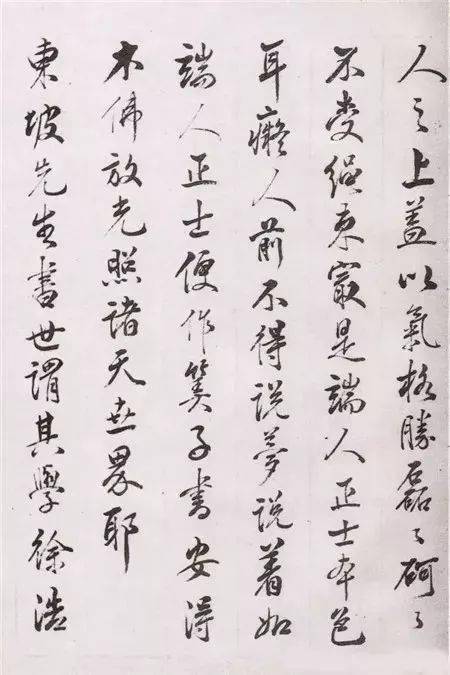 人之上蓋以氣格勝磊〻砢〻
不受繩束寂是端人正士本色
耳癡人前不得說夢說着如
端人正士便作算子書安得
木佛放光照諸天世界耶
東坡先生書世謂其學徐浩